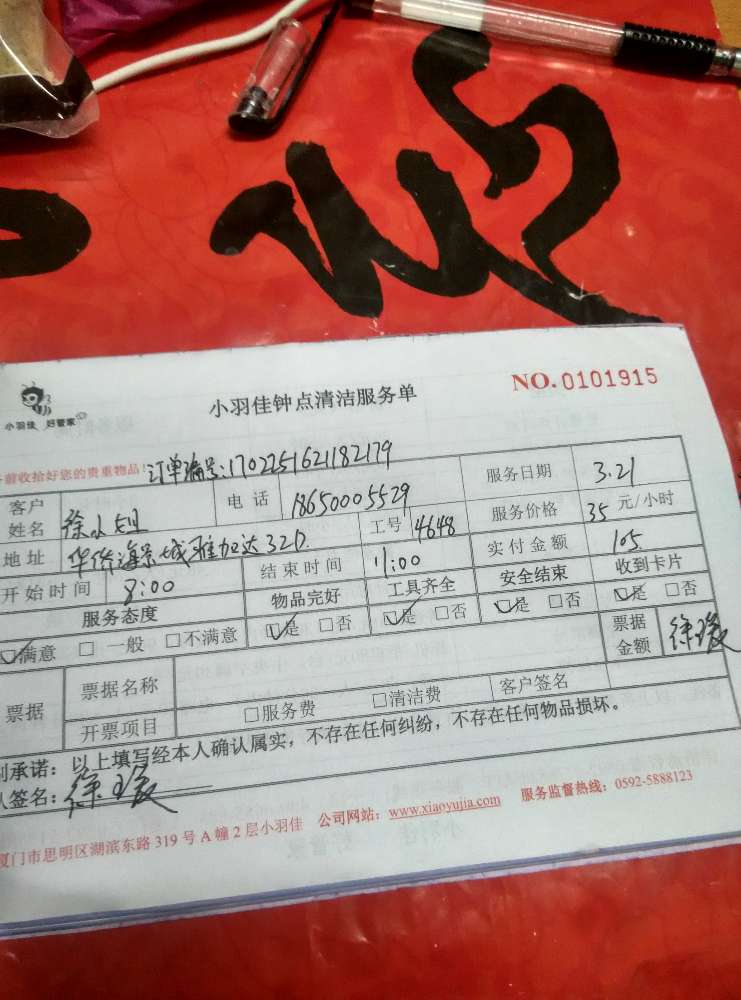 小羽佳 好管家
小羽佳钟点清洁服务单
NO.0101915
前收拾好您的贵重物品!
订单编号:1702251621182179
客户姓名 徐小姐 电话 18650005529 服务日期 3.21
地址 华侨海景城雅加达32D 工号 4648 服务价格 35 元/小时
开始时间 8:00 结束时间 11:00 实付金额 105
服务态度 物品完好 工具齐全 安全结束 收到卡片
☑满意 □一般 □不满意 ☑是 □否 ☑是 □否 ☑是 □否 ☑是 □否
票据 票据名称 票据金额
开票项目 □服务费 □清洁费 客户签名
承诺:以上填写经本人确认属实,不存在任何纠纷,不存在任何物品损坏。
签名:
厦门市思明区湖滨东路319号A幢2层小羽佳 公司网站:www.xiaoyujia.com 服务监督热线:0592-5888123